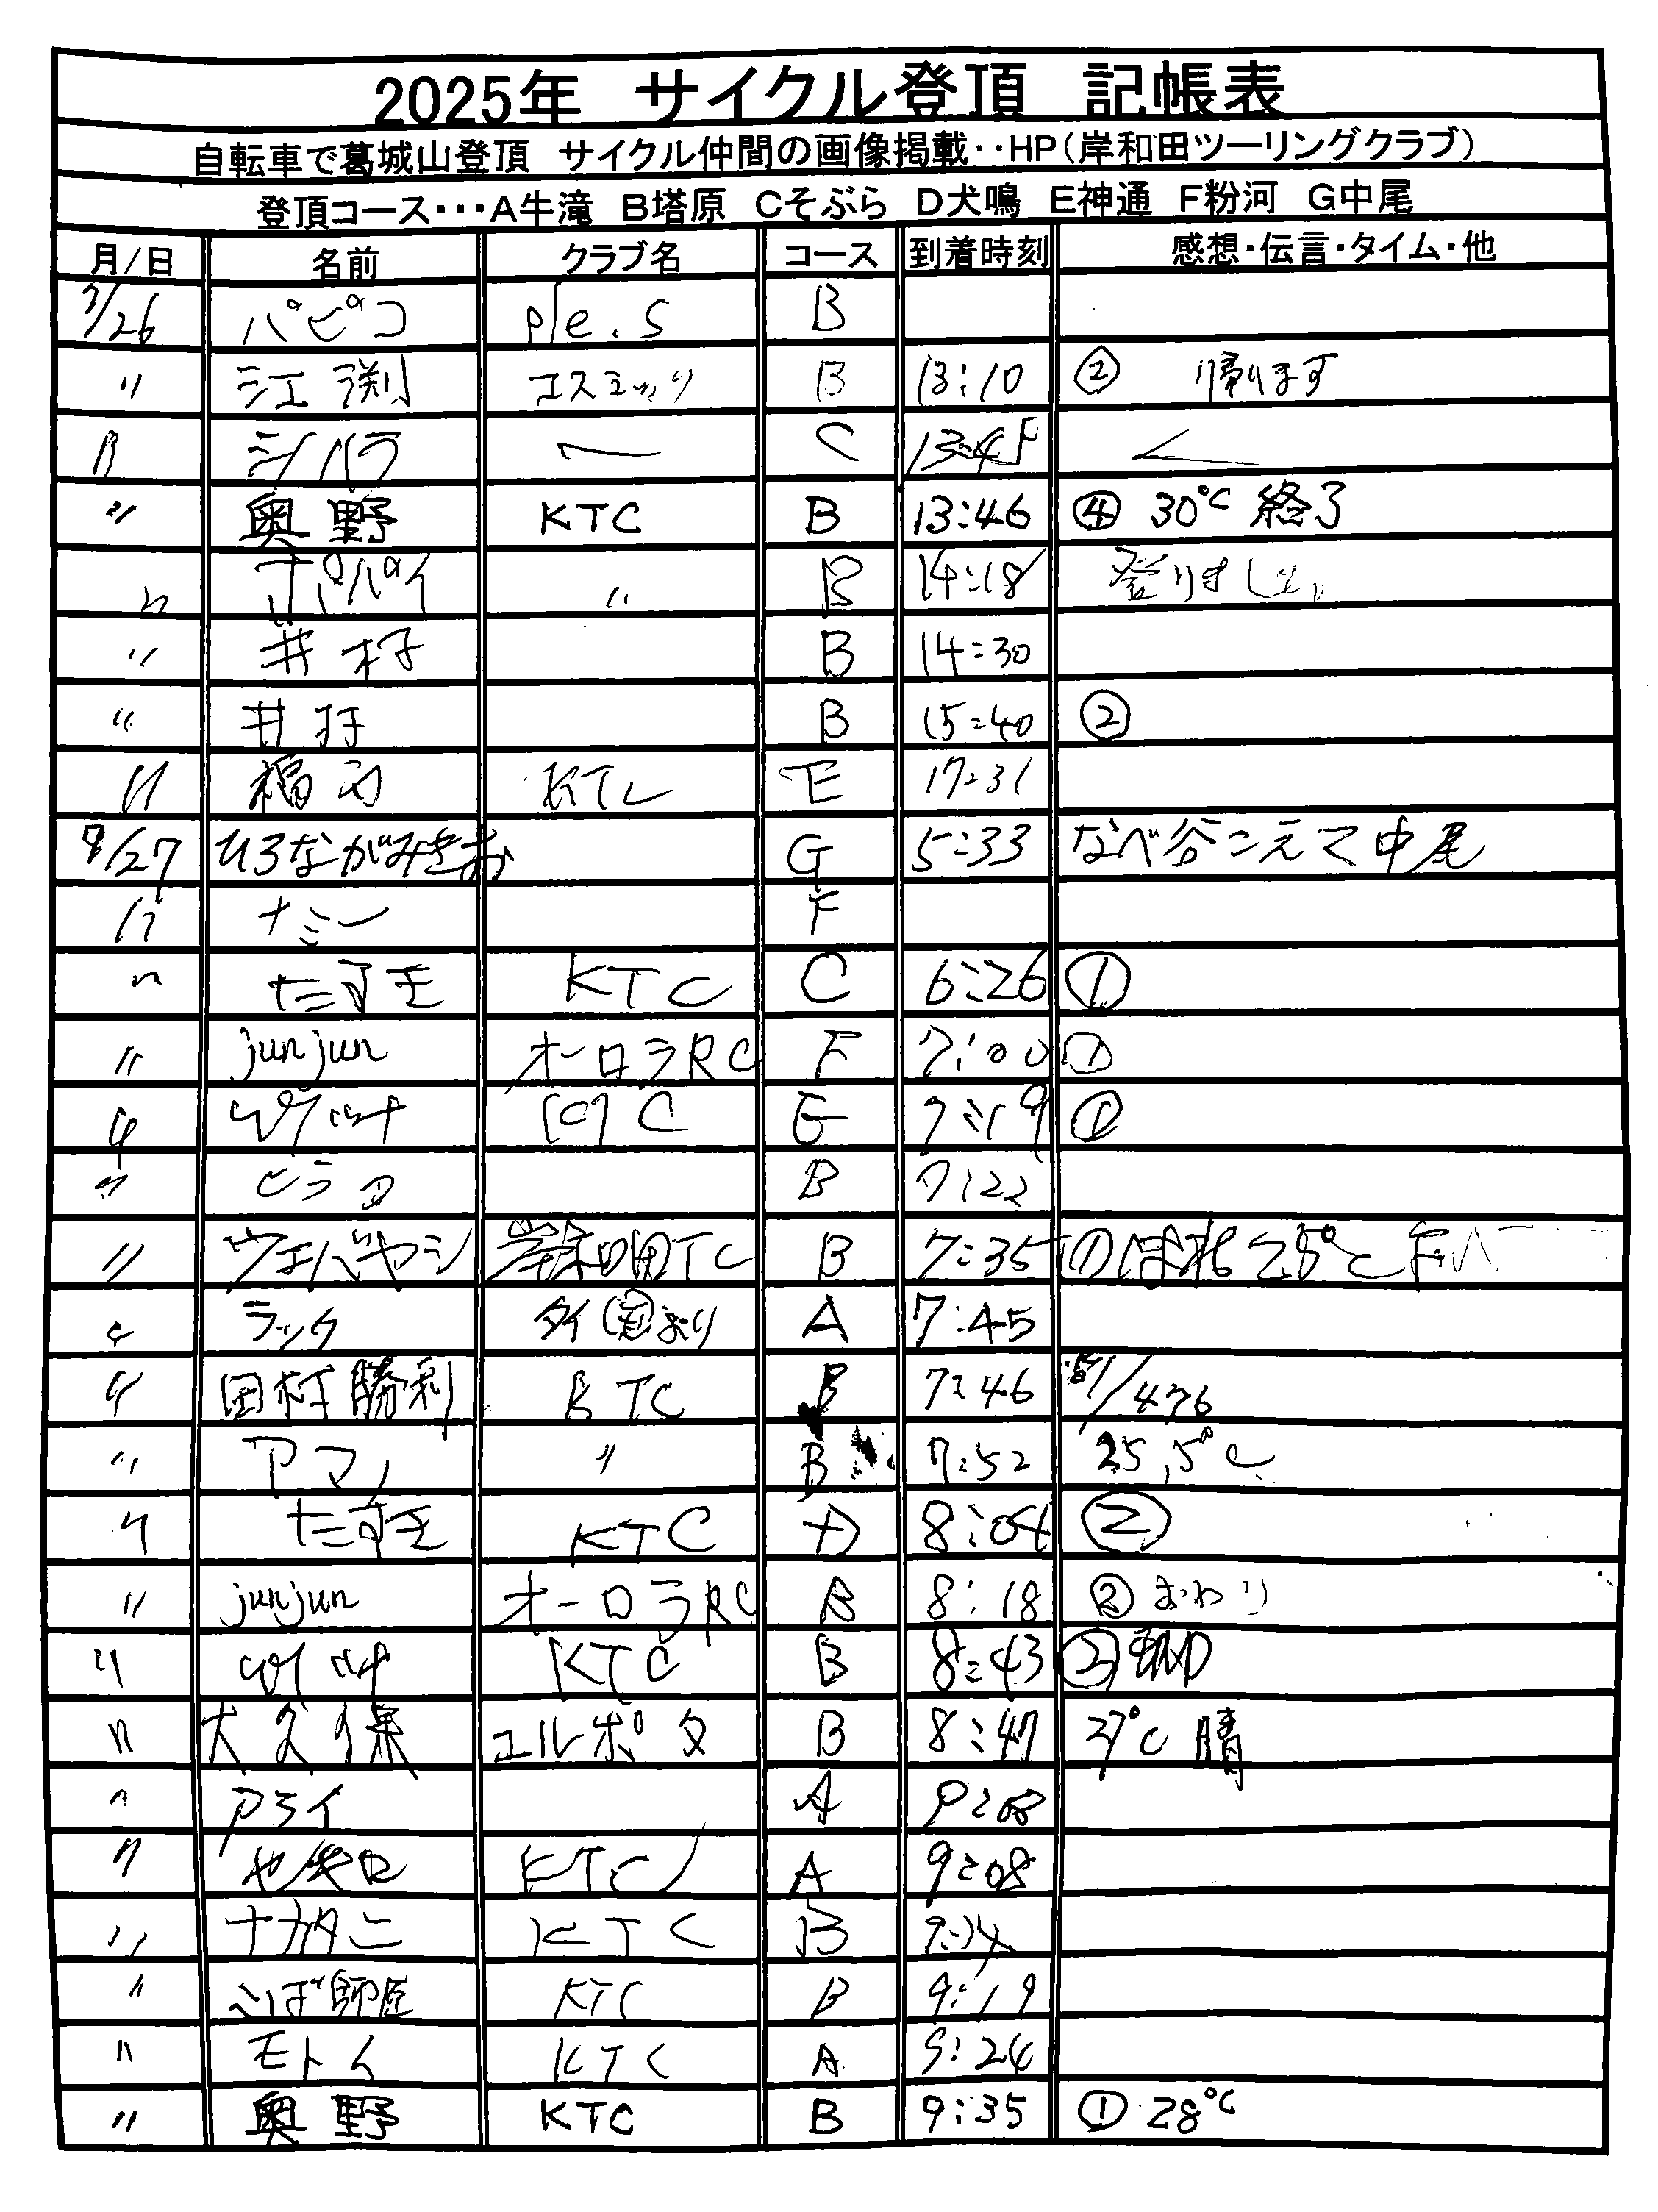 2025年 サイクル登頂 記帳表
自転車で葛城山登頂 サイクル仲間の画像掲載‥HP(岸和田ツーリングクラブ)
登頂コース・・・A牛滝 B塔原 Cそぶら D犬鳴 E神通 F粉河 G中尾
月/日 名前 クラブ名 コース 到着時刻 感想・伝言・タイム・他
7/26 パピコ ple.s B
〃 江渕 コスミック B 13:10 ② 帰ります
〃 シバラ ー C 13:45
〃 奥野 KTC B 13:46 ④ 30℃ 終了
〃 ポパイ 〃 B 14:18 登りました。
〃 井村 B 14:30
〃 井村 B 15:40 ②
〃 福島 KTC E 17:31
7/27 ひろながみきお G 5:33 なべ谷こえて中尾
〃 ナミー F
〃 KTC C 6:26 ①
〃 junjun オーロラRC F 7:00 ①
〃 KTC E 7:19 ①
〃 ヒラタ B 7:22
〃 ウエバヤシ 岸和田TC B 7:35 のぼれ 25℃
〃 ラック タイ国より A 7:45
〃 田村勝利 KTC B 7:46 /476
〃 アマノ 〃 B 7:52 25.5℃
〃 KTC D 8:04 ②
〃 junjun オーロラRC B 8:18 ② おわり
〃 KTC B 8:43 ② END
〃 大久保 ユルポタ B 8:47 27℃ 晴
〃 アライ A 9:08
〃 KTC A 9:08
〃 ナカタニ KTC B 9:14
〃 こば師匠 KTC B 9:19
〃 モトイ KTC A 9:24
〃 奥野 KTC B 9:35 ① 28℃